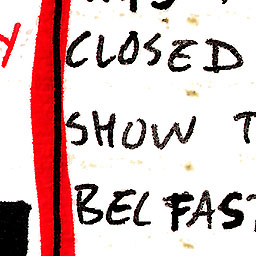 CLOSED
SHOW T
BELFAST